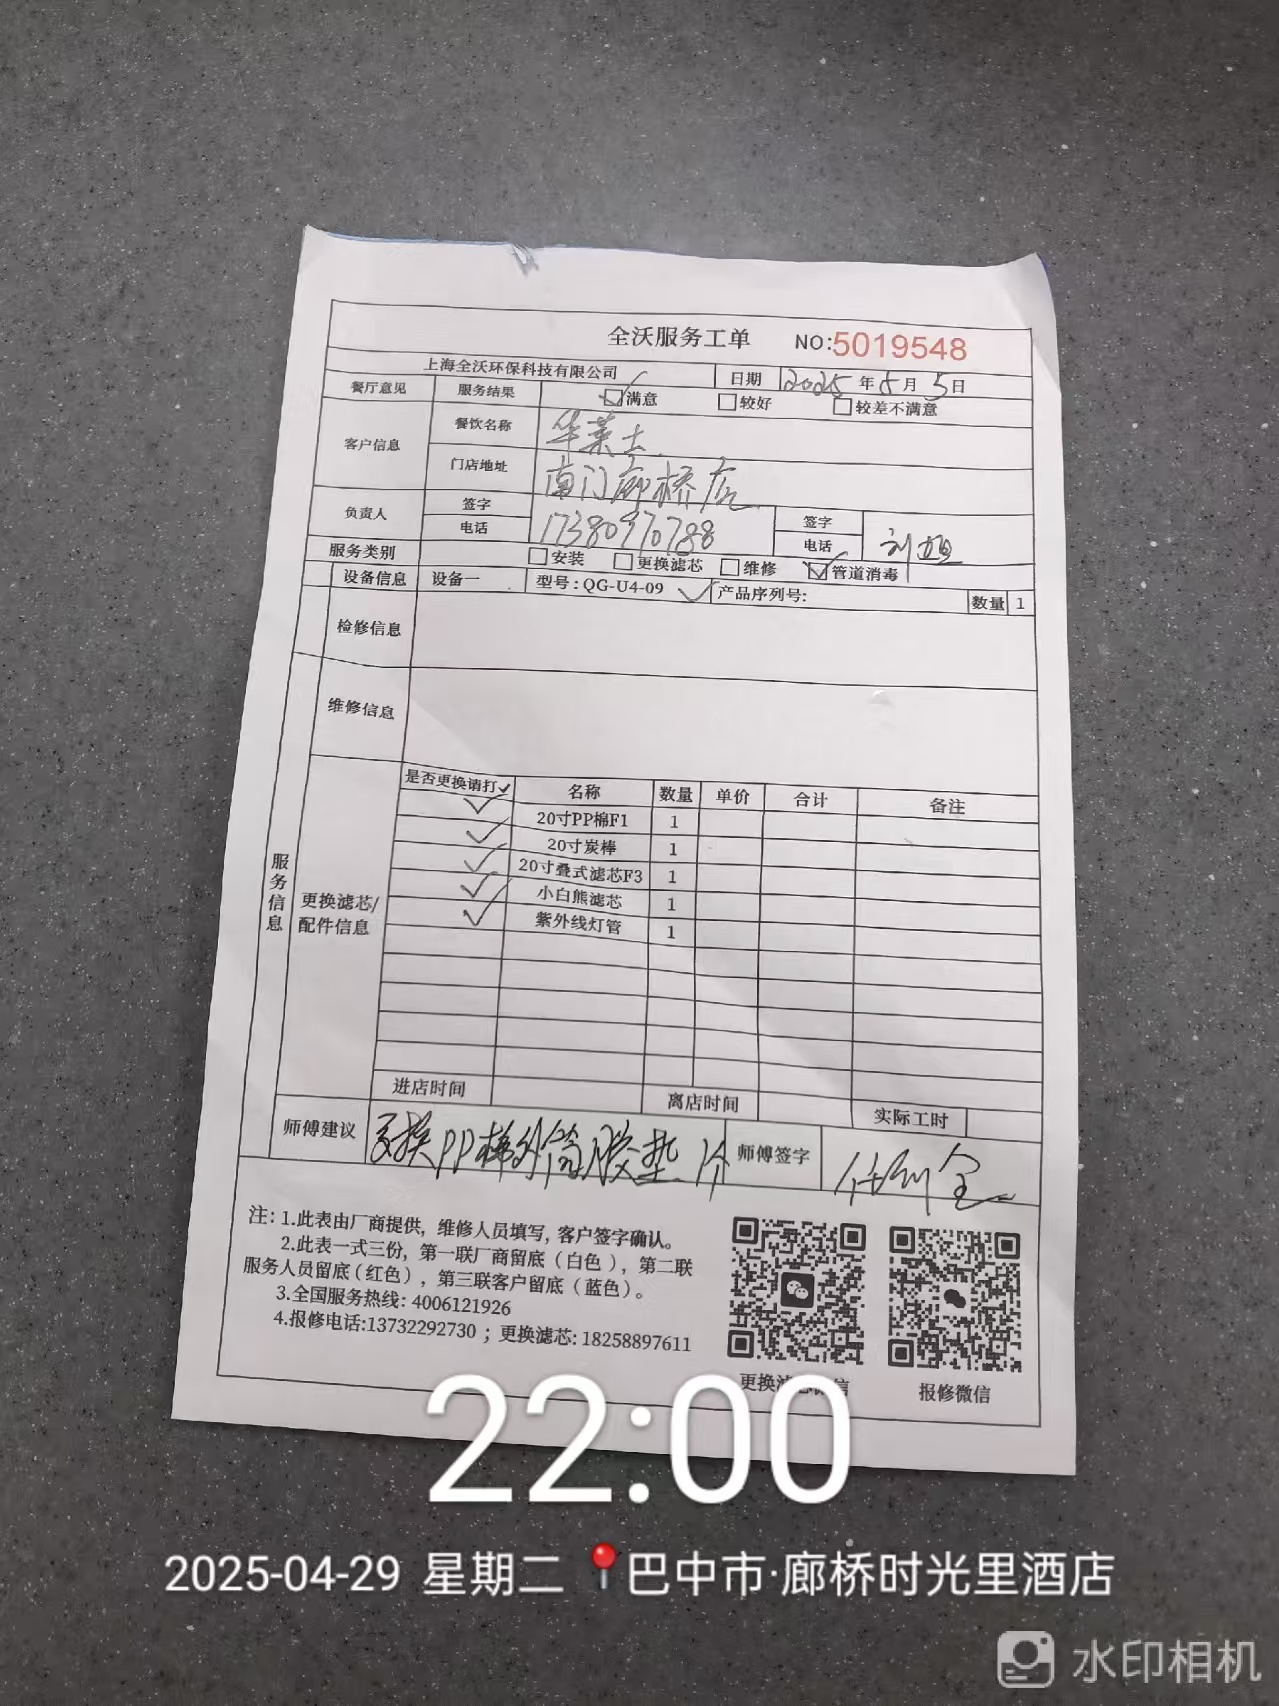 全沃服务工单 NO:5019548
上海全沃环保科技有限公司 日期 2025年5月5日
餐厅意见 服务结果 满意 较好 较差不满意
客户信息 餐饮名称 华莱士
门店地址 南门廊桥店
负责人 签字 签字
电话 17380970788 电话 刘旭
服务类别 安装 更换滤芯 维修 ✓管道消毒
设备信息 设备一 型号:QG-U4-09 ✓ 产品序列号: 数量 1
检修信息
维修信息
服务信息
更换滤芯/配件信息
是否更换请打✓ 名称 数量 单价 合计 备注
✓ 20寸PP棉F1 1
✓ 20寸炭棒 1
✓ 20寸叠式滤芯F3 1
✓ 小白熊滤芯 1
✓ 紫外线灯管 1
进店时间 离店时间 实际工时
师傅建议 更换PP棉外筒胶垫 1个 师傅签字
注:1.此表由厂商提供,维修人员填写,客户签字确认。
2.此表一式三份,第一联厂商留底(白色),第二联
服务人员留底(红色),第三联客户留底(蓝色)。
3.全国服务热线: 4006121926
4.报修电话:13732292730 ;更换滤芯: 18258897611
更换滤芯微信 报修微信
22:00
2025-04-29 星期二 巴中市·廊桥时光里酒店
水印相机